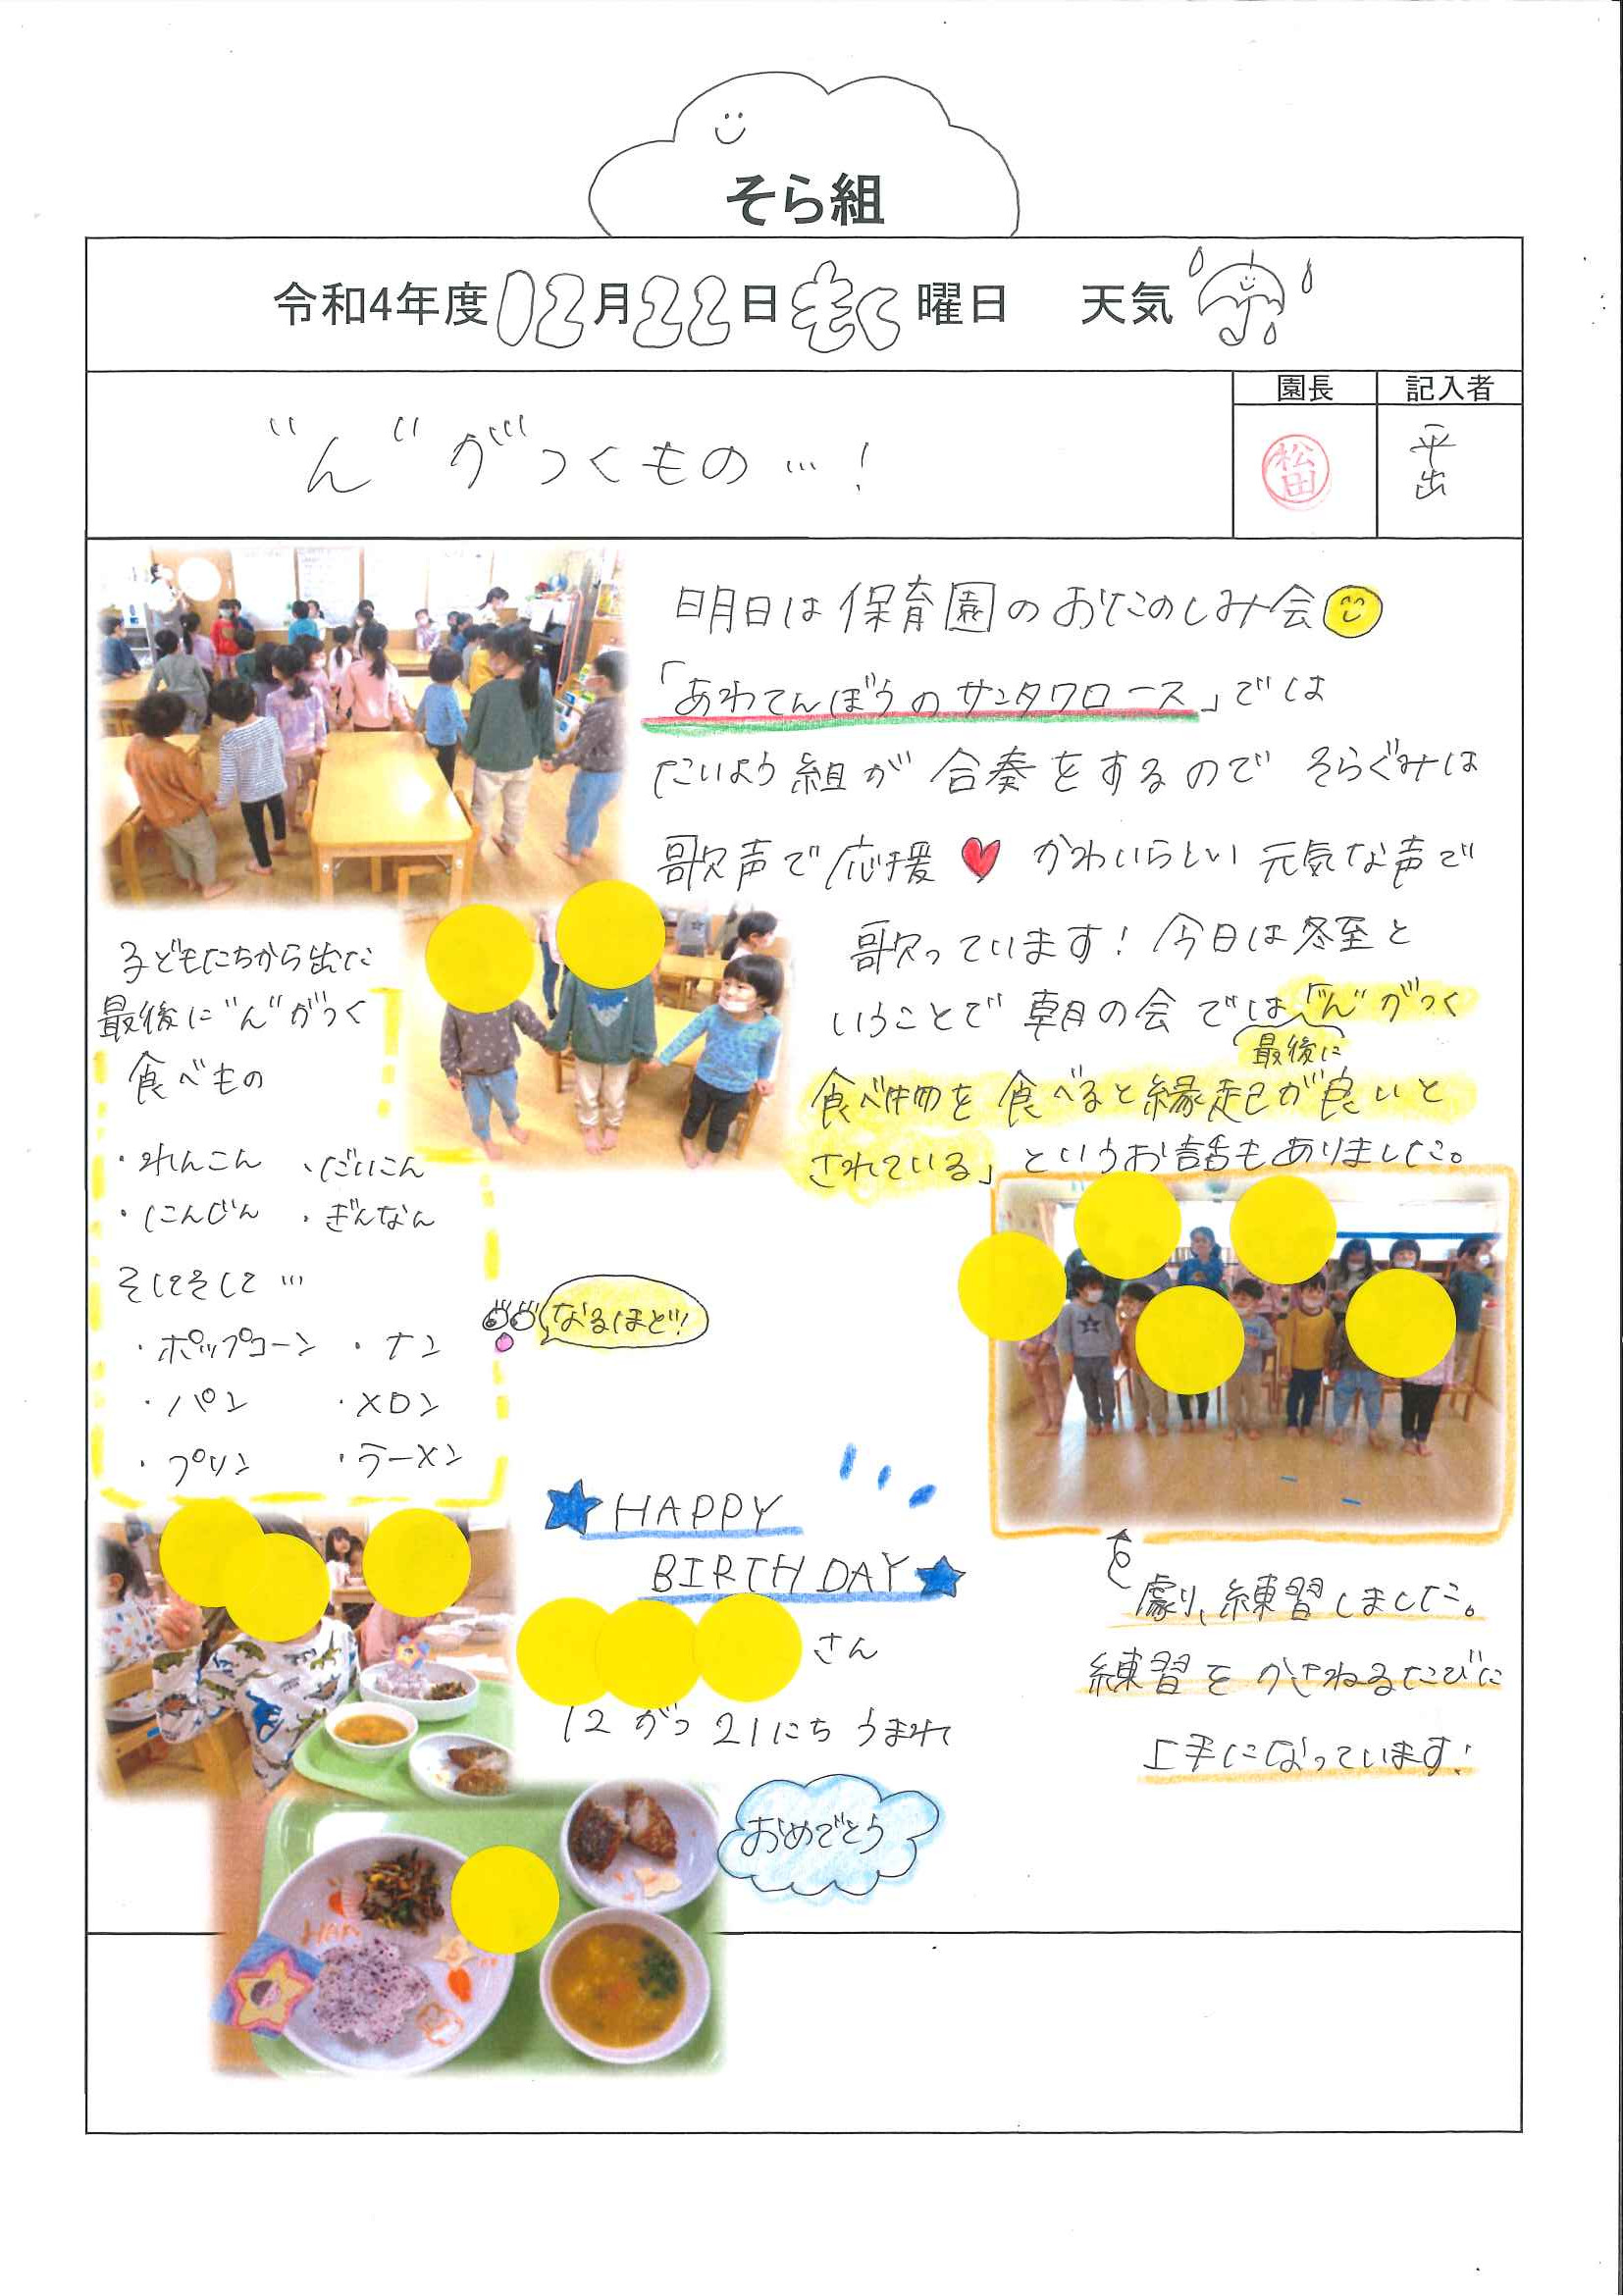 そら組
令和4年度 12月22日 もく曜日 天気
園長 記入者
"ん"がつくもの…!
松田
平出
明日は保育園のおたのしみ会
「あわてんぼうのサンタクロース」では
たいよう組が合奏をするので そらぐみは
歌声で応援 かわいらしい元気な声で
歌っています!今日は冬至と
いうことで朝の会では「"ん"がつく
最後に
食べ物を食べると縁起が良いと
されている」というお話もありました。
子どもたちから出た
最後に"ん"がつく
食べもの
・れんこん ・だいこん
・にんじん ・ぎんなん
そしてそして…
・ポップコーン ・ナン
・パン ・メロン
・プリン ・ラーメン
なるほど!
HAPPY
BIRTHDAY
さん
12がつ21にち うまれ
おめでとう
劇、練習しました。
練習をかさねるたびに
上手になっています!